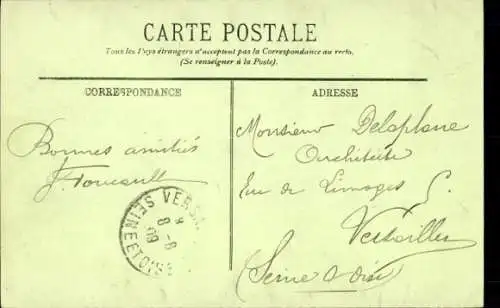 CARTE POSTALE
Tous les Pays étrangers n'acceptent pas la Correspondance au recto.
(Se renseigner à la Poste).
CORRESPONDANCE
ADRESSE
Bonnes amitiés
Monsieur Delaplane
Architecte
Rue de Limoges
Versailles
(Seine & Oise)
SEINE ET OISE
8-8
09